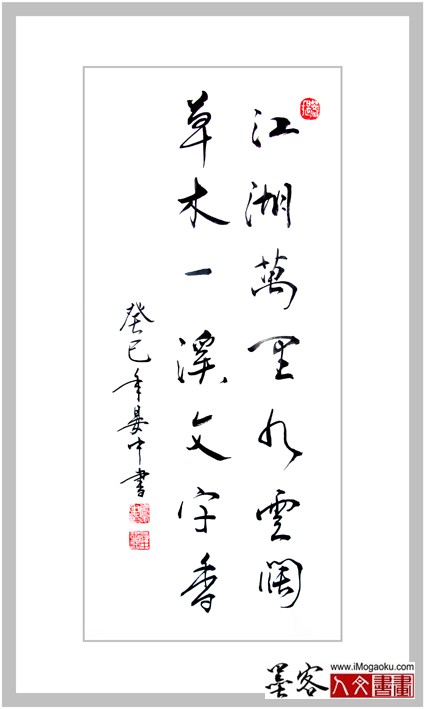 江湖萬里水雲闊
草木一溪文字香
癸巳年晏中書
墨客
www.iMogaoku.com
人文書畫